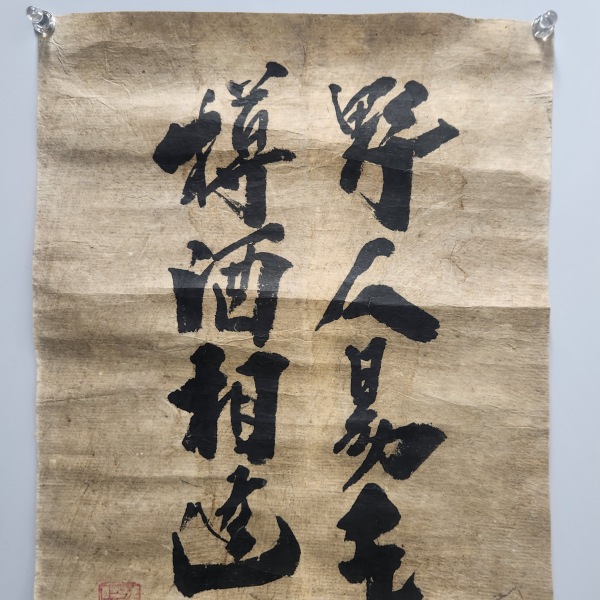 野人易
樽酒相逢